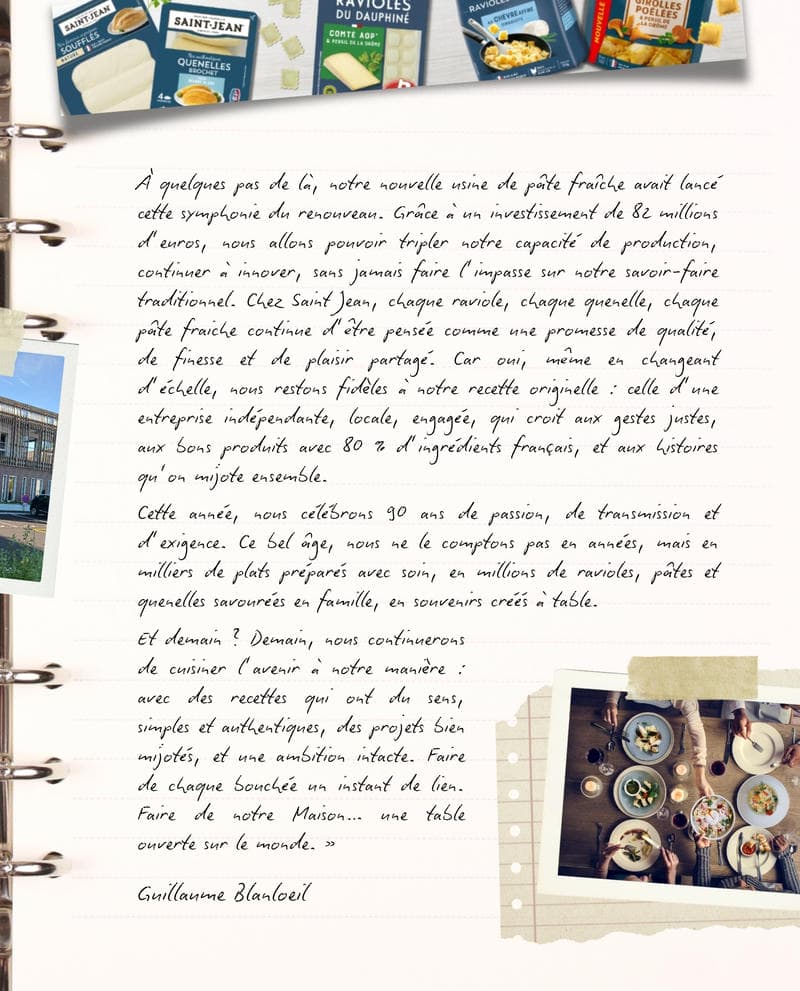 SAINT-JEAN
SOUFFLÉS
NATURE
SAINT-JEAN
QUENELLES
BROCHET
RAVIOLES
DU DAUPHINÉ
COMTÉ AOP
& PERSIL DE LA DRÔME
RAVIOLES
AU CHÈVRE AFFINÉ
NOUVELLE
GIROLLES
POÊLÉES
& PERSIL DE
LA DRÔME
À quelques pas de là, notre nouvelle usine de pâte fraîche avait lancé
cette symphonie du renouveau. Grâce à un investissement de 82 millions
d'euros, nous allons pouvoir tripler notre capacité de production,
continuer à innover, sans jamais faire l'impasse sur notre savoir-faire
traditionnel. Chez Saint Jean, chaque raviole, chaque quenelle, chaque
pâte fraiche continue d'être pensée comme une promesse de qualité,
de finesse et de plaisir partagé. Car oui, même en changeant
d'échelle, nous restons fidèles à notre recette originelle : celle d'une
entreprise indépendante, locale, engagée, qui croit aux gestes justes,
aux bons produits avec 80 % d'ingrédients français, et aux histoires
qu'on mijote ensemble.
Cette année, nous célébrons 90 ans de passion, de transmission et
d'exigence. Ce bel âge, nous ne le comptons pas en années, mais en
milliers de plats préparés avec soin, en millions de ravioles, pâtes et
quenelles savourées en famille, en souvenirs créés à table.
Et demain ? Demain, nous continuerons
de cuisiner l'avenir à notre manière :
avec des recettes qui ont du sens,
simples et authentiques, des projets bien
mijotés, et une ambition intacte. Faire
de chaque bouchée un instant de lien.
Faire de notre Maison... une table
ouverte sur le monde. »
Guillaume Blanloeil